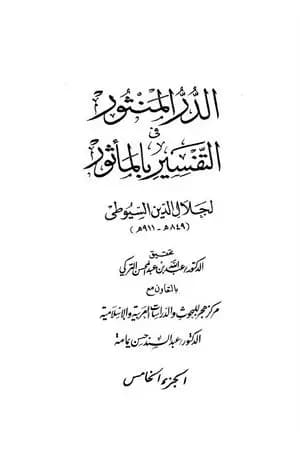 الدُّرُّ المَنْثُور
في
التَّفْسِيرِ بِالمَأْثُور
لجَلَال الدِّين السُّيُوطِيّ
(٨٤٩هـ - ٩١١هـ)
تحقيق
الدكتور/عبد اللَّه بن عبد المحسن التركي
بالتعاون مع
مركز هجر للبحوث والدراسات العربية والإسلامية
الدكتور/عبد السند حسن يمامة
الجزء الخامس